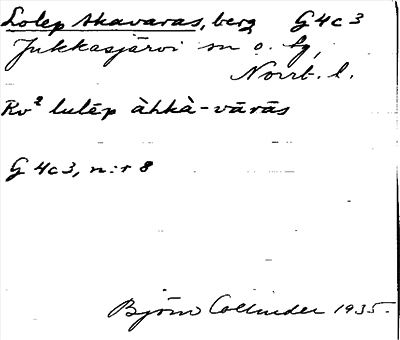 Lolep Akavaras, berg G4c3
Jukkasjärvi sn o. tg,
Norrb. l.
Rv² lulēp àhkà-vārās
G4c3, n:r 8
Björn Collinder 1935.